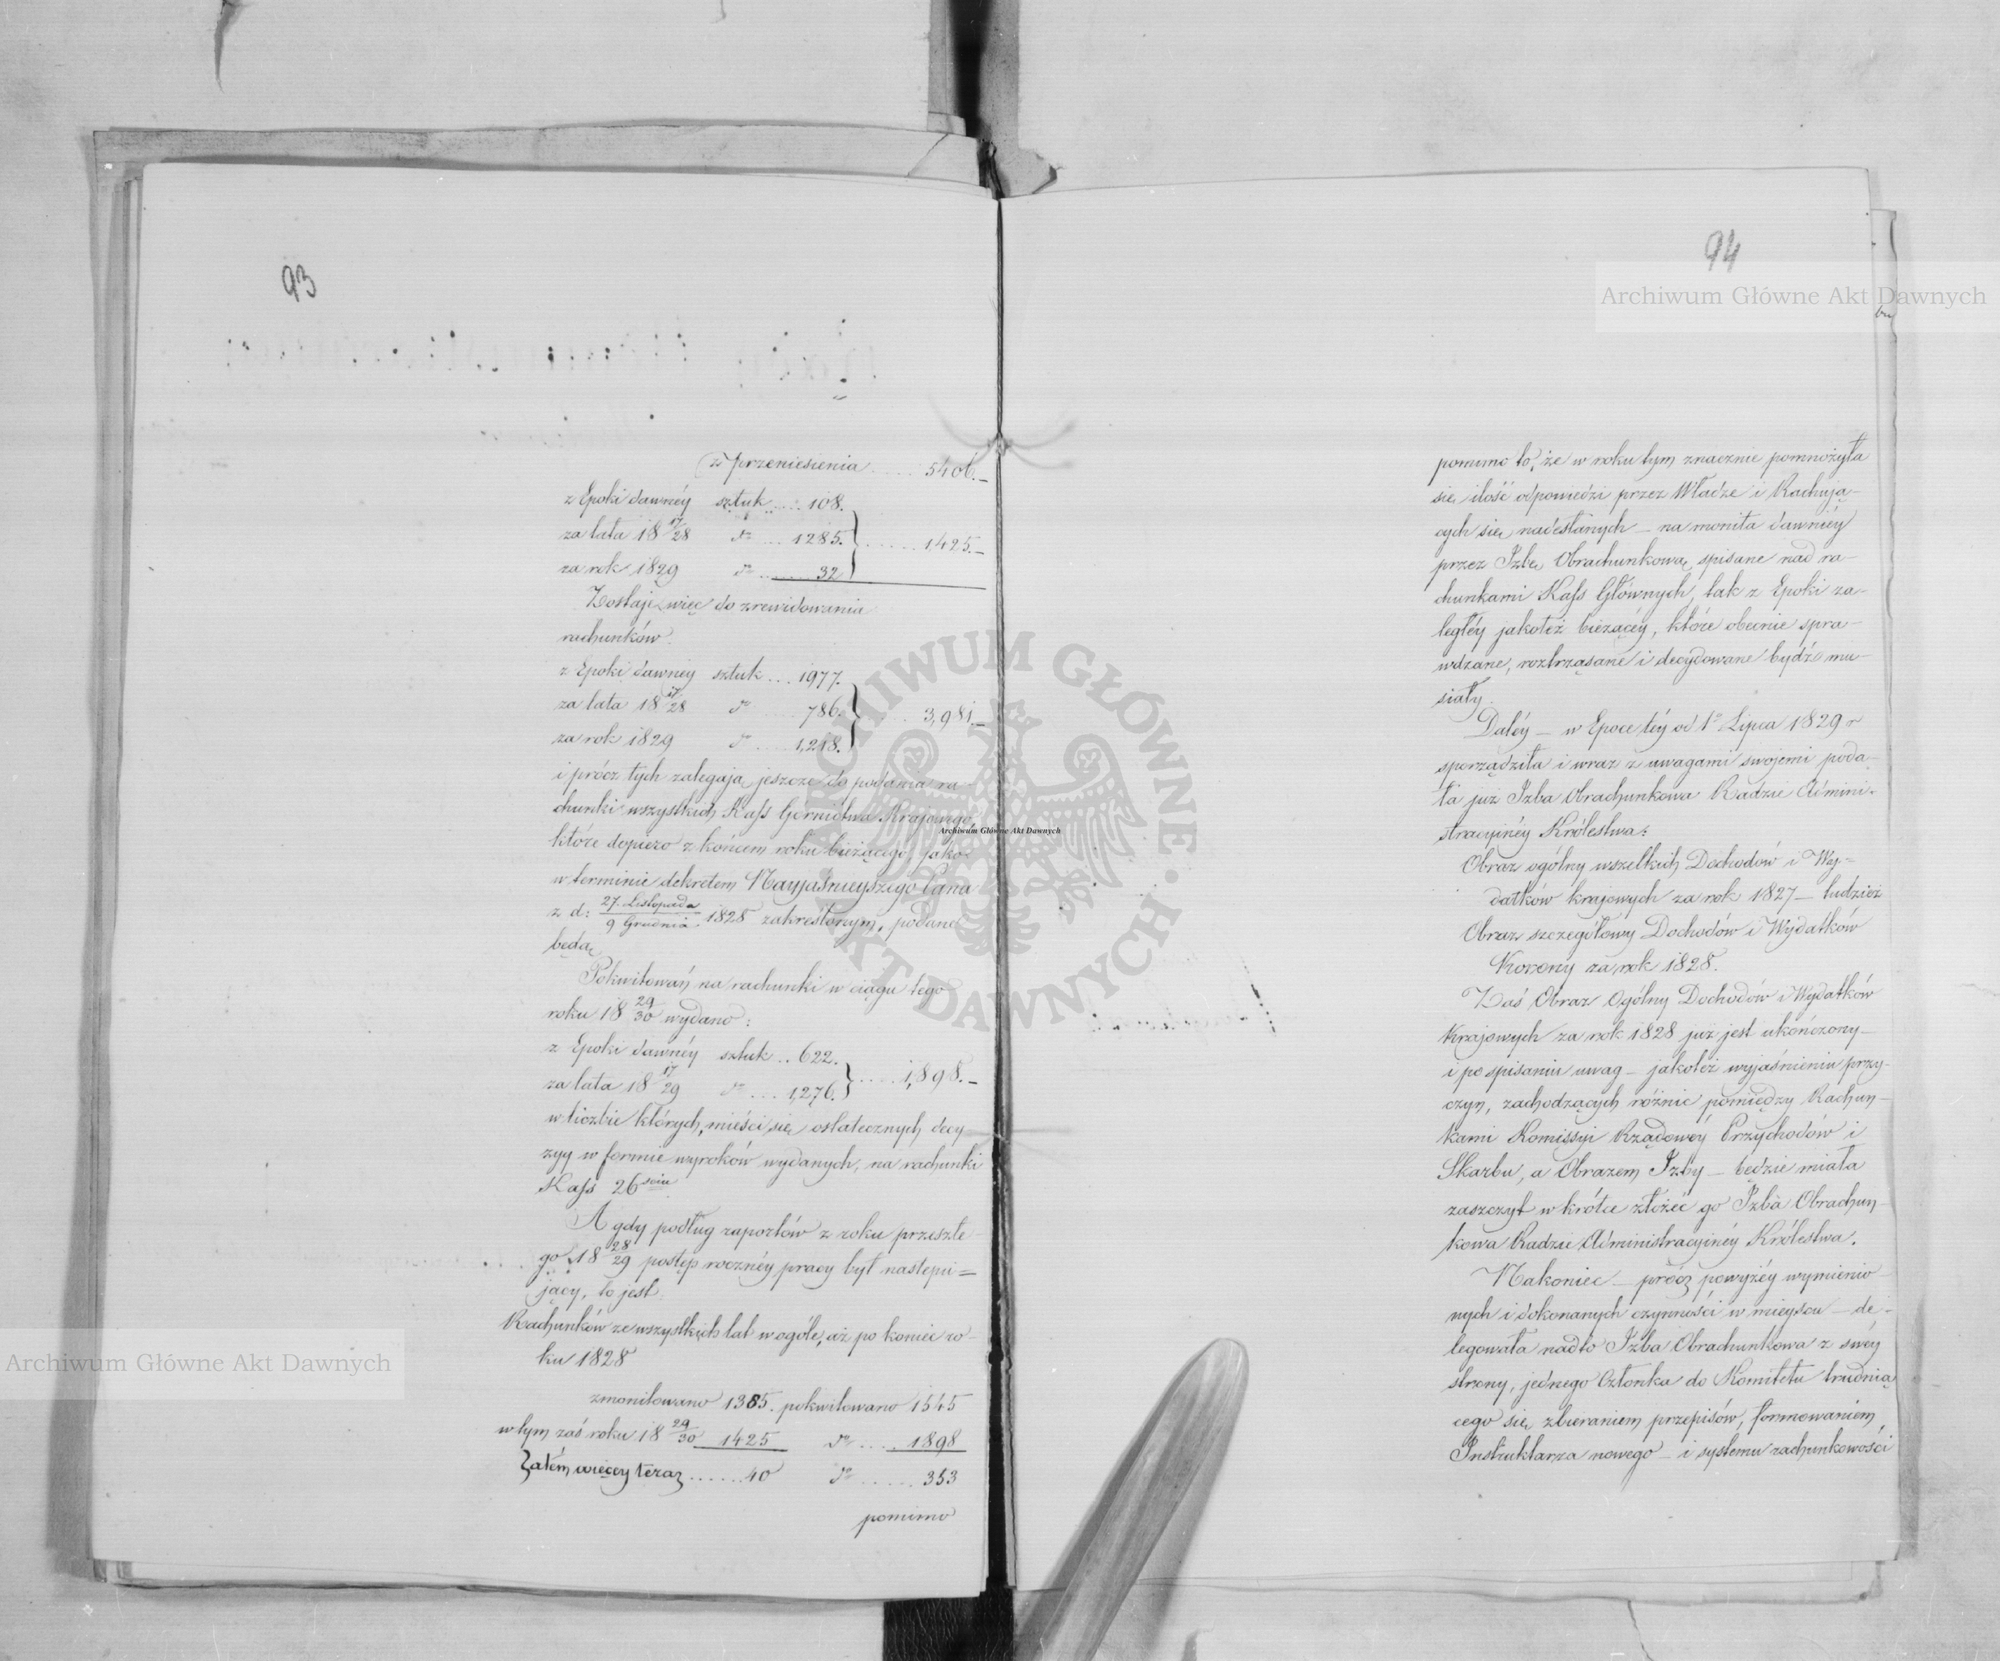 93
z przeniesienia ..... 5406.—
z Epoki dawnéy sztuk .... 108.
za lata 18 17/28 do .... 1285. } ...... 1425.—
za rok 1829 do ...... 32
Zostaje więc do zrewidowania
rachunków.
z Epoki dawnéy sztuk ... 1977.
za lata 18 17/28 do ..... 786. } ..... 3,981.—
za rok 1829 do ..... 1,218.
i prócz tych zalegają jeszcze do podania ra-
chunki wszystkich Kass Górnictwa Krajowego,
które dopiero z końcem roku bieżącego, jako
w terminie dekretem Nayjaśnieyszego Pana
z d: 27. Listopada / 9 Grudnia 1828 zakreślonym, podane
będą.
Pokwitowań na rachunki w ciągu tego
roku 18 29/30 wydano:
z Epoki dawnéy sztuk .. 622.
za lata 18 17/29 do .... 1,276. } ..... 1,898.—
w liczbie których, mieści się ostatecznych decy-
zyy w formie wyroków wydanych, na rachunki
Kass 26
A gdy podług raportów z roku przeszłe-
go 18 28/29 postęp rocznéy pracy był następu=
jący, to jest:
Rachunków ze wszystkich lat w ogóle, aż po koniec ro-
ku 1828
zmonitowano 1385. pokwitowano 1545
w tym zaś roku 18 29/30 1425 do .... 1898
Zatém więcey teraz ...... 40 do ...... 353
pomimo
94
pomimo to, że w roku tym znacznie pomnożyła
się ilość odpowiedzi przez Władze i Rachują-
cych się nadesłanych — na monita dawniéy
przez Izbę Obrachunkową spisane nad ra-
chunkami Kass Głównych, tak z Epoki za-
ległéy jakotéż bieżącéy, które obecnie spra-
wdzane, roztrząsane i decydowane bydź mu-
siały.
Daléy — w Epoce téy od 1o Lipca 1829 r
sporządziła i wraz z uwagami swojemi poda-
ła już Izba Obrachunkowa Radzie Admini-
stracyinéy Królestwa:
Obraz ogólny wszelkich Dochodów i Wy=
datków krajowych za rok 1827 — tudzież
Obraz szczegółowy Dochodów i Wydatków
Korony za rok 1828.
Zaś Obraz Ogólny Dochodów i Wydatków
Krajowych za rok 1828 już jest ukończony —
i po spisaniu uwag — jakotéż wyjaśnieniu przy-
czyn, zachodzących różnic pomiędzy Rachun-
kami Komissyi Rządowéy Przychodów i
Skarbu, a Obrazem Izby — będzie miała
zaszczyt wkrótce złożyć go Izba Obrachun-
kowa Radzie Administracyinéy Królestwa.
Nakoniec — prócz powyżéy wymienio-
nych i dokonanych czynności w mieyscu — de-
legowała nadto Izba Obrachunkowa z swéy
strony, jednego Członka do Komitetu trudnią
cego się zbieraniem przepisów, formowaniem
Instruktarza nowego — i systemu rachunkowości
bu
Archiwum Główne Akt Dawnych
Archiwum Główne Akt Dawnych
Archiwum Główne Akt Dawnych
ARCHIWUM GŁÓWNE AKT DAWNYCH